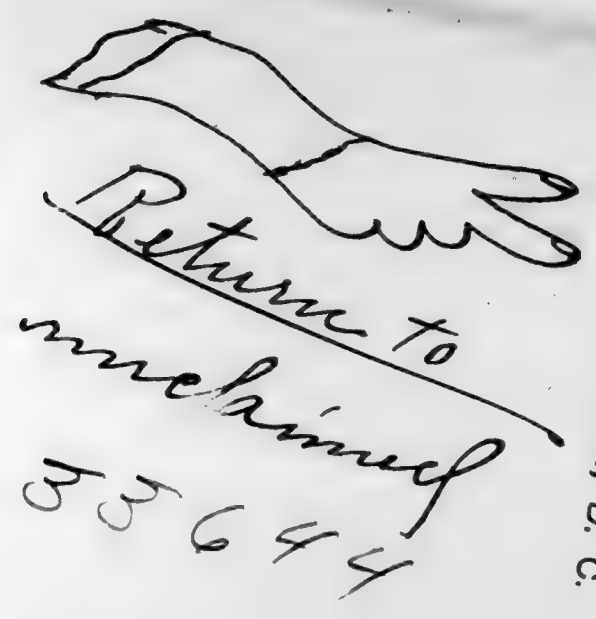 Return to
unclaimed
33644
C.